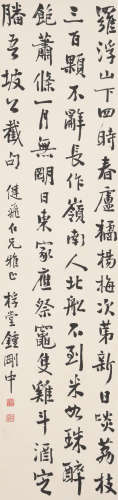 羅浮山下四時春盧橘楊梅次第新日啖荔枝
三百顆不辭長作嶺南人北船不到米如珠醉
飽蕭條一月無明日東家應祭竈隻雞斗酒定
膰吾坡公截句 健飛仁兄雅正 桴堂鍾剛中